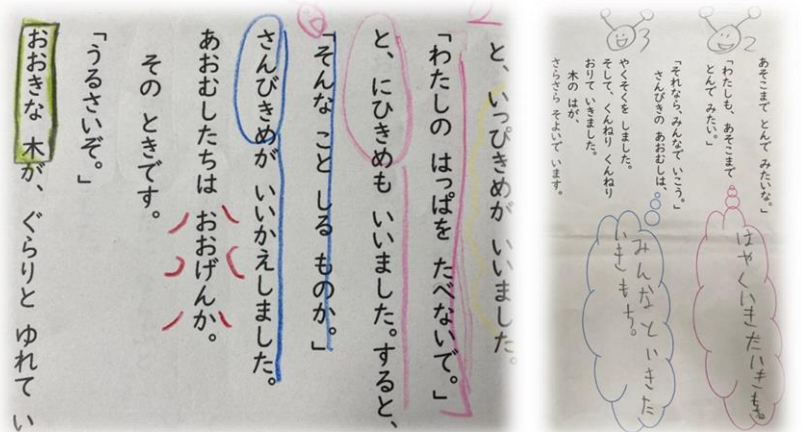 と、いっぴきめが いいました。
「わたしの はっぱを たべないで。」
と、にひきめも いいました。すると、
「そんな こと しる ものか。」
さんびきめが いいかえしました。
あおむしたちは おおげんか。
その ときです。
「うるさいぞ。」
おおきな 木が、ぐらりと ゆれて い
2
3
あそこまで とんで みたいな。」
「わたしも、あそこまで
とんで みたい。」
「それなら、みんなで いこう。」
さんびきの あおむしは、
やくそくを しました。
そして、くんねり くんねり
おりて いきました。
木の はが、
さらさら そよいで います。
はやくいきたいきもち。
みんなといきた
いきもち。